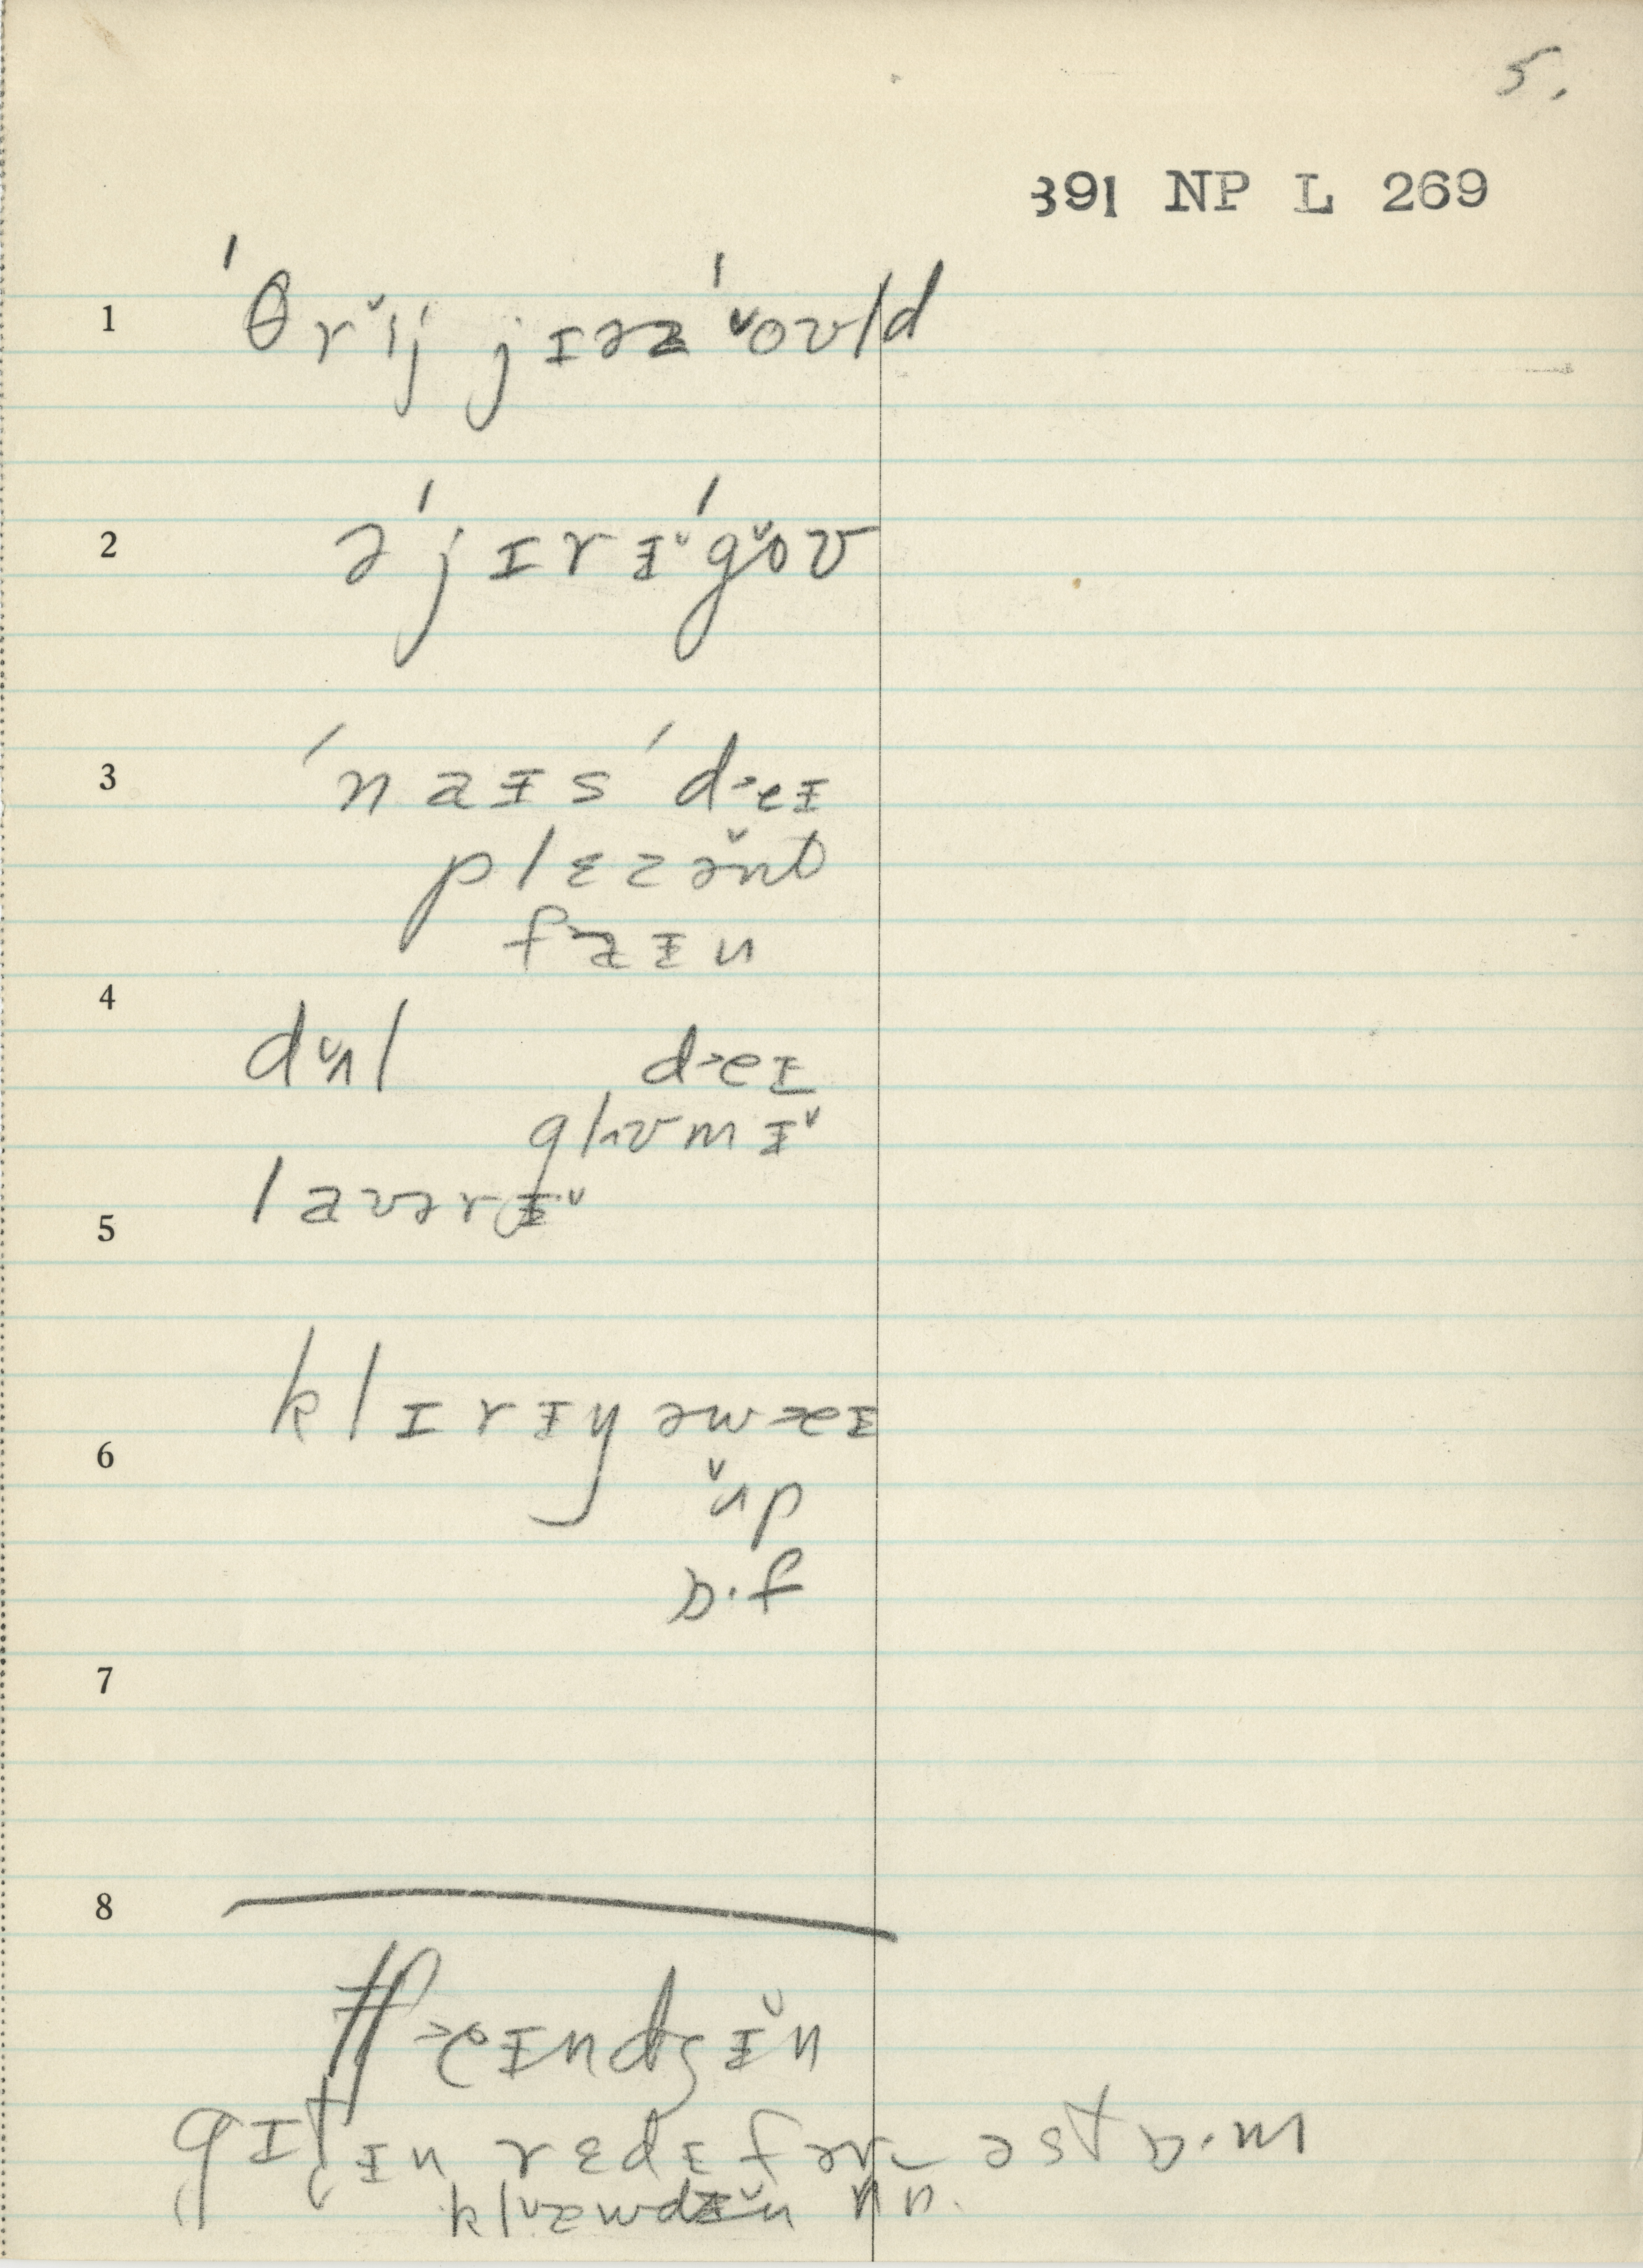 5.
391 NP L 269
1 ˈθrˇij jɪəz ˈˇoʊld
2 əˈjɪrɪ̵ˇˈgˇoʊ
3 ˈnaɪ̵sˈd>eɪ̵
plɛzə̌nt
fɪ̵n
4
dʌ̌l d>eɪ̵
glʊmɪ̵ˇ
5 laʊərɪ̵ˇ
klɪrɪ̵ŋ əwæeɪ̵
6
ʌ̌p
ɒ·f
7
8
tʃ>eɪ̵ndʒɪ̵̌n
gɪtɪ̵n rɛdɪ̵ fər ə stɒ·m
klæʊdɪ̵̌n ʌ̌p.